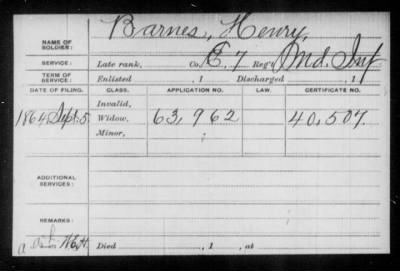 NAME OF SOLDIER: Barnes, Henry,
SERVICE: Late rank, Co. E. 7 Reg't Md. Inf
TERM OF SERVICE: Enlisted , 1 Discharged , 1
DATE OF FILING. CLASS. APPLICATION NO. LAW. CERTIFICATE NO.
Invalid,
1864 Sept. 5. Widow, 63,962 40,507.
Minor,
ADDITIONAL SERVICES:
REMARKS:
Died , 1 , at